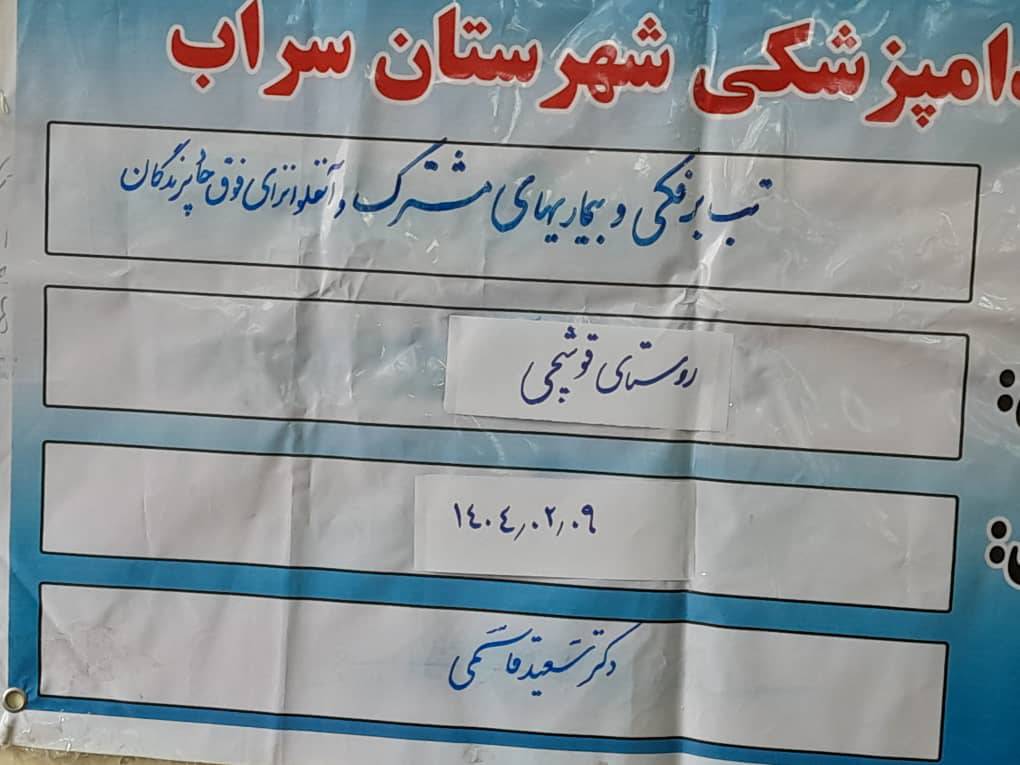 دامپزشکی شهرستان سراب
تب برفکی و بیماریهای مشترک و آنفلوانزای فوق حاد پرندگان
روستای قوشچی
۱۴۰۴٫۰۲٫۰۹
دکتر سعید قاسمی